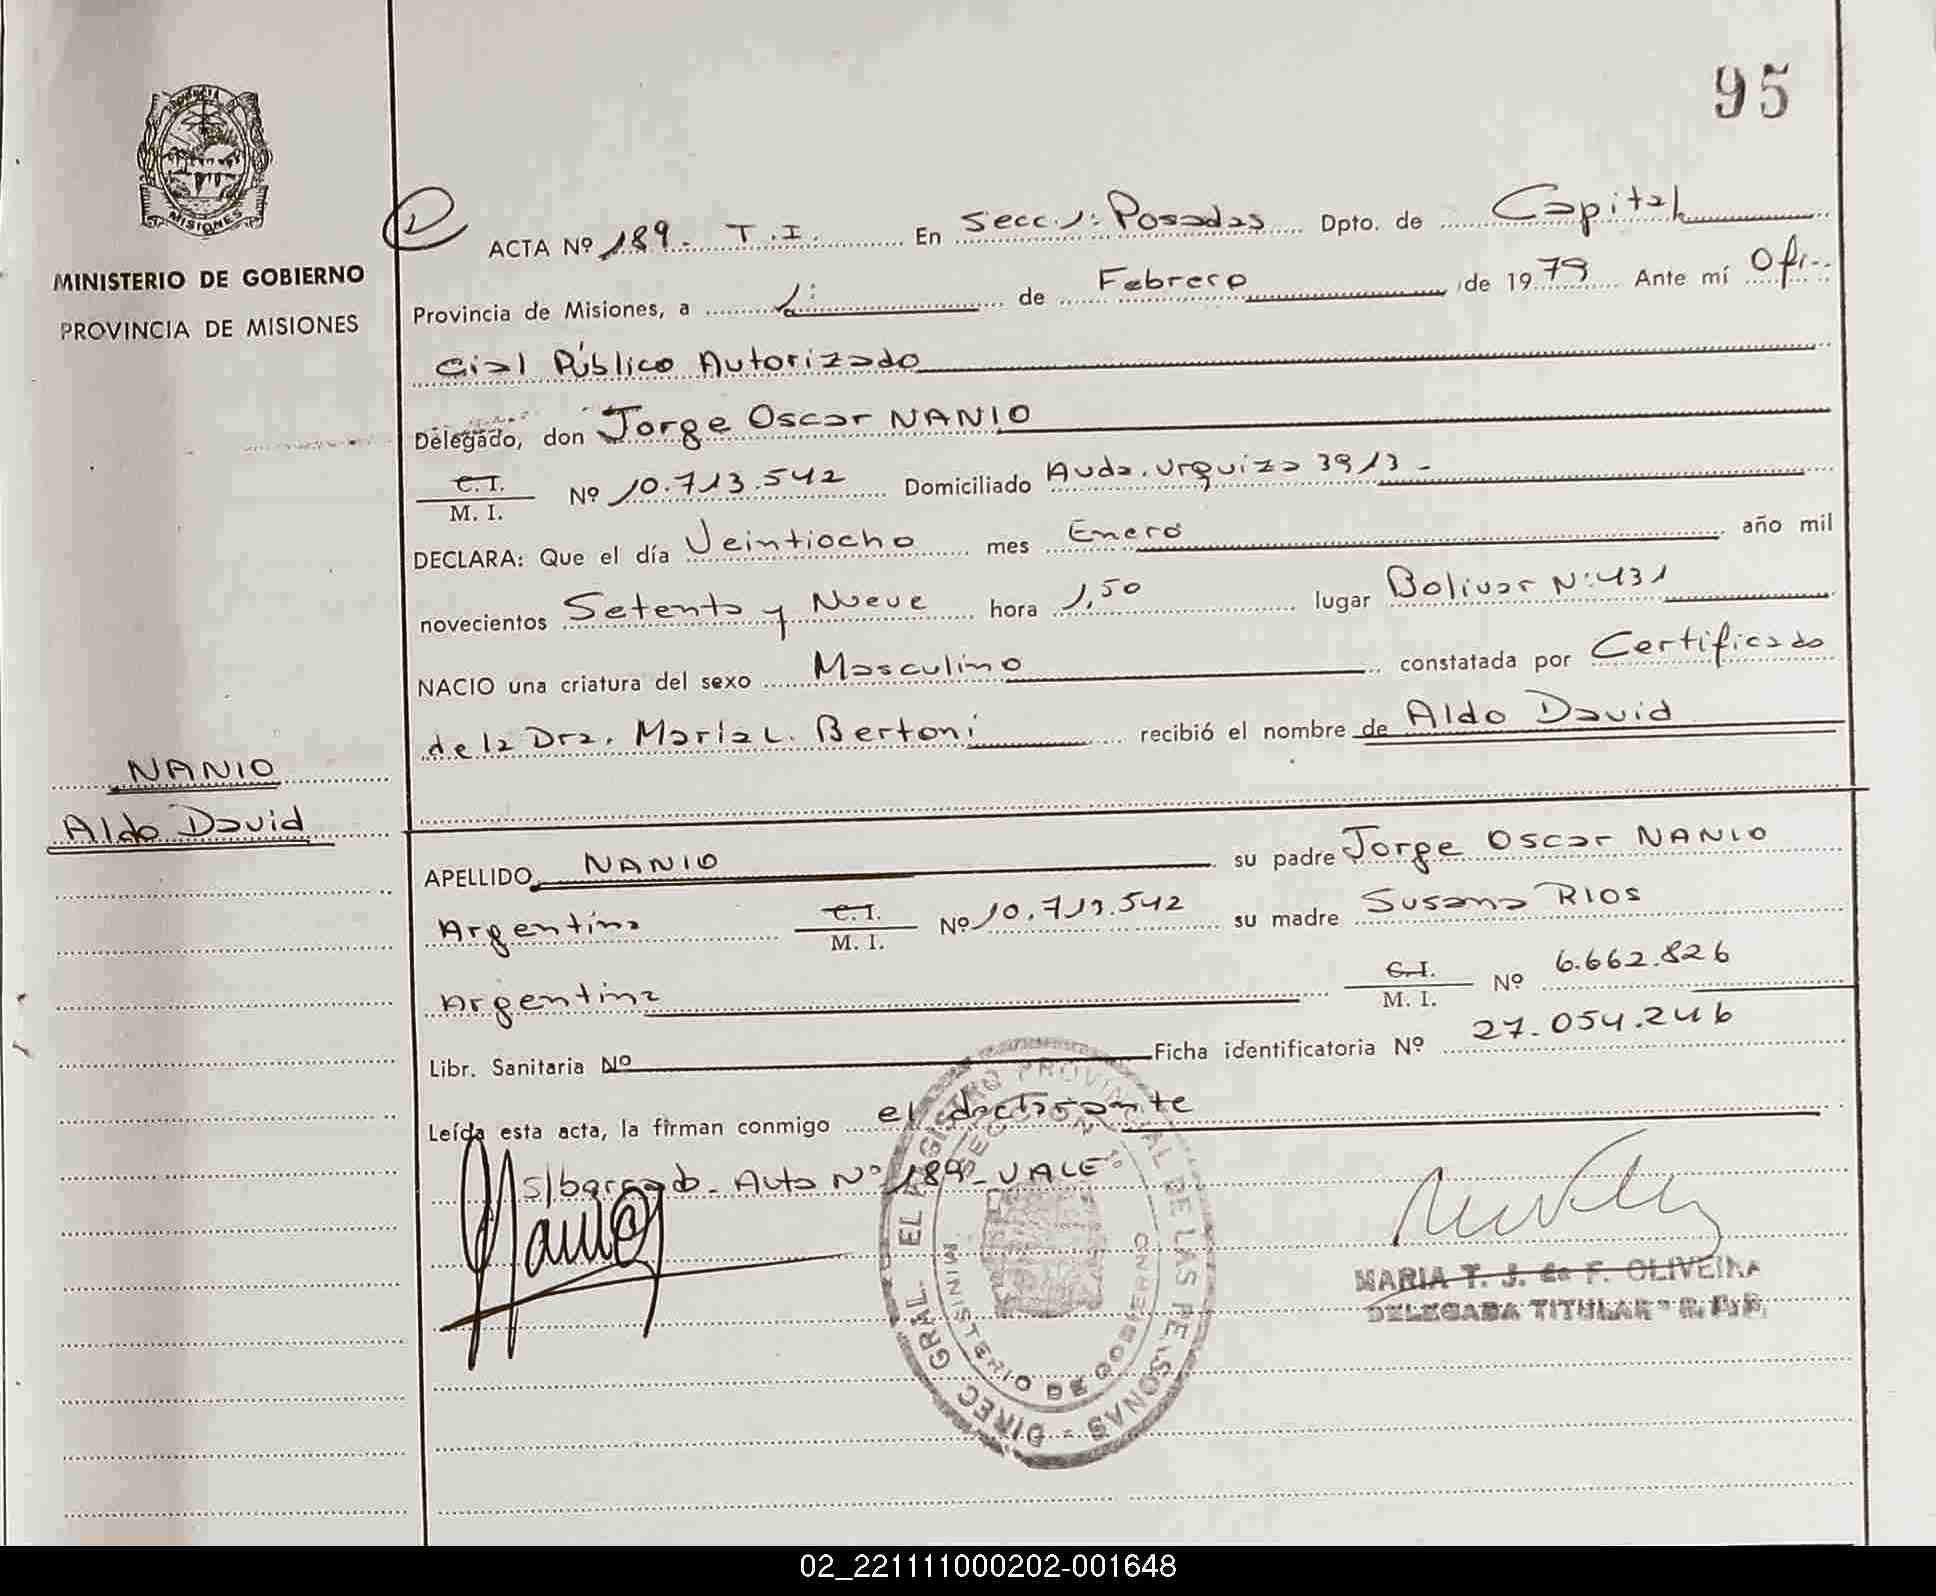 95
PROVINCIA DE
MISIONES
MINISTERIO DE GOBIERNO
PROVINCIA DE MISIONES
NANIO
Aldo David
ACTA Nº 189. T.I. En Secc. 1: Posadas Dpto. de Capital
Provincia de Misiones, a 1: de Febrero de 1979 Ante mí Ofi-
cial Público Autorizado
Delegado, don Jorge Oscar NANIO
C.I.
M. I. Nº 10.713.542 Domiciliado Avda. Urquiza 3913-
DECLARA: Que el día Veintiocho mes Enero año mil
novecientos Setenta y Nueve hora 1,50 lugar Bolivar Nº: 431
NACIO una criatura del sexo Masculino constatada por Certificado
de la Dra. Maria L. Bertoni recibió el nombre de Aldo David
APELLIDO NANIO su padre Jorge Oscar NANIO
Argentino C.I. M. I. Nº 10.713.542 su madre Susana RIOS
Argentina C.I. M. I. Nº 6.662.826
Libr. Sanitaria Nº Ficha identificatoria Nº 27.054.246
Leída esta acta, la firman conmigo el declarante
s/borrado- Acta Nº 189- VALE
MARIA T. J. de F. OLIVEIRA
DELEGADA TITULAR R.P.P.
DIREC GRAL. EL REGISTRO PROVINCIAL DE LAS PERSONAS
MINISTERIO DE GOBIERNO
SECCION 1º
02_221111000202-001648